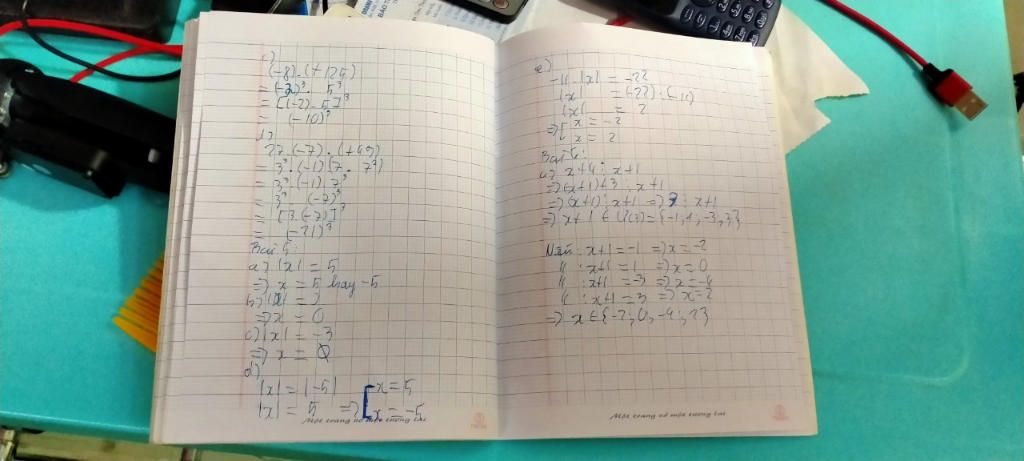 c)
(-8).(+125)
= (-2)³. 5³
= [(-2).5]³
= (-10)³
d)
27.(-7).(+49)
= 3³.(-1)(7. 7²)
= 3³.(-1).7³
= 3³. (-7)³
= [3.(-7)]³
= (-21)³
Bài 5:
a) |x| = 5
=> x = 5 hay -5
b) |x| =
=> x = 0
c) |x| = -3
=> x = Ø
d)
|x| = |-5|
|x| = 5 => [ x = 5
x = -5
Một trang vở một tương lai
e)
-11.|x| = -22
|x| = (-22):(-11)
|x| = 2
=> [ x = -2
x = 2
Bài 6:
a) x+4 ⋮ x+1
=> (x+1)+3 ⋮ x+1
=> (x+1) ⋮ x+1 => 3 ⋮ x+1
=> x+1 ∈ Ư(3) = {-1;1;-3;3}
Nếu : x+1 = -1 => x = -2
" : x+1 = 1 => x = 0
" : x+1 = -3 => x = -4
" : x+1 = 3 => x = 2
=> x ∈ {-2; 0; -4; 2}
Một trang vở một tương lai